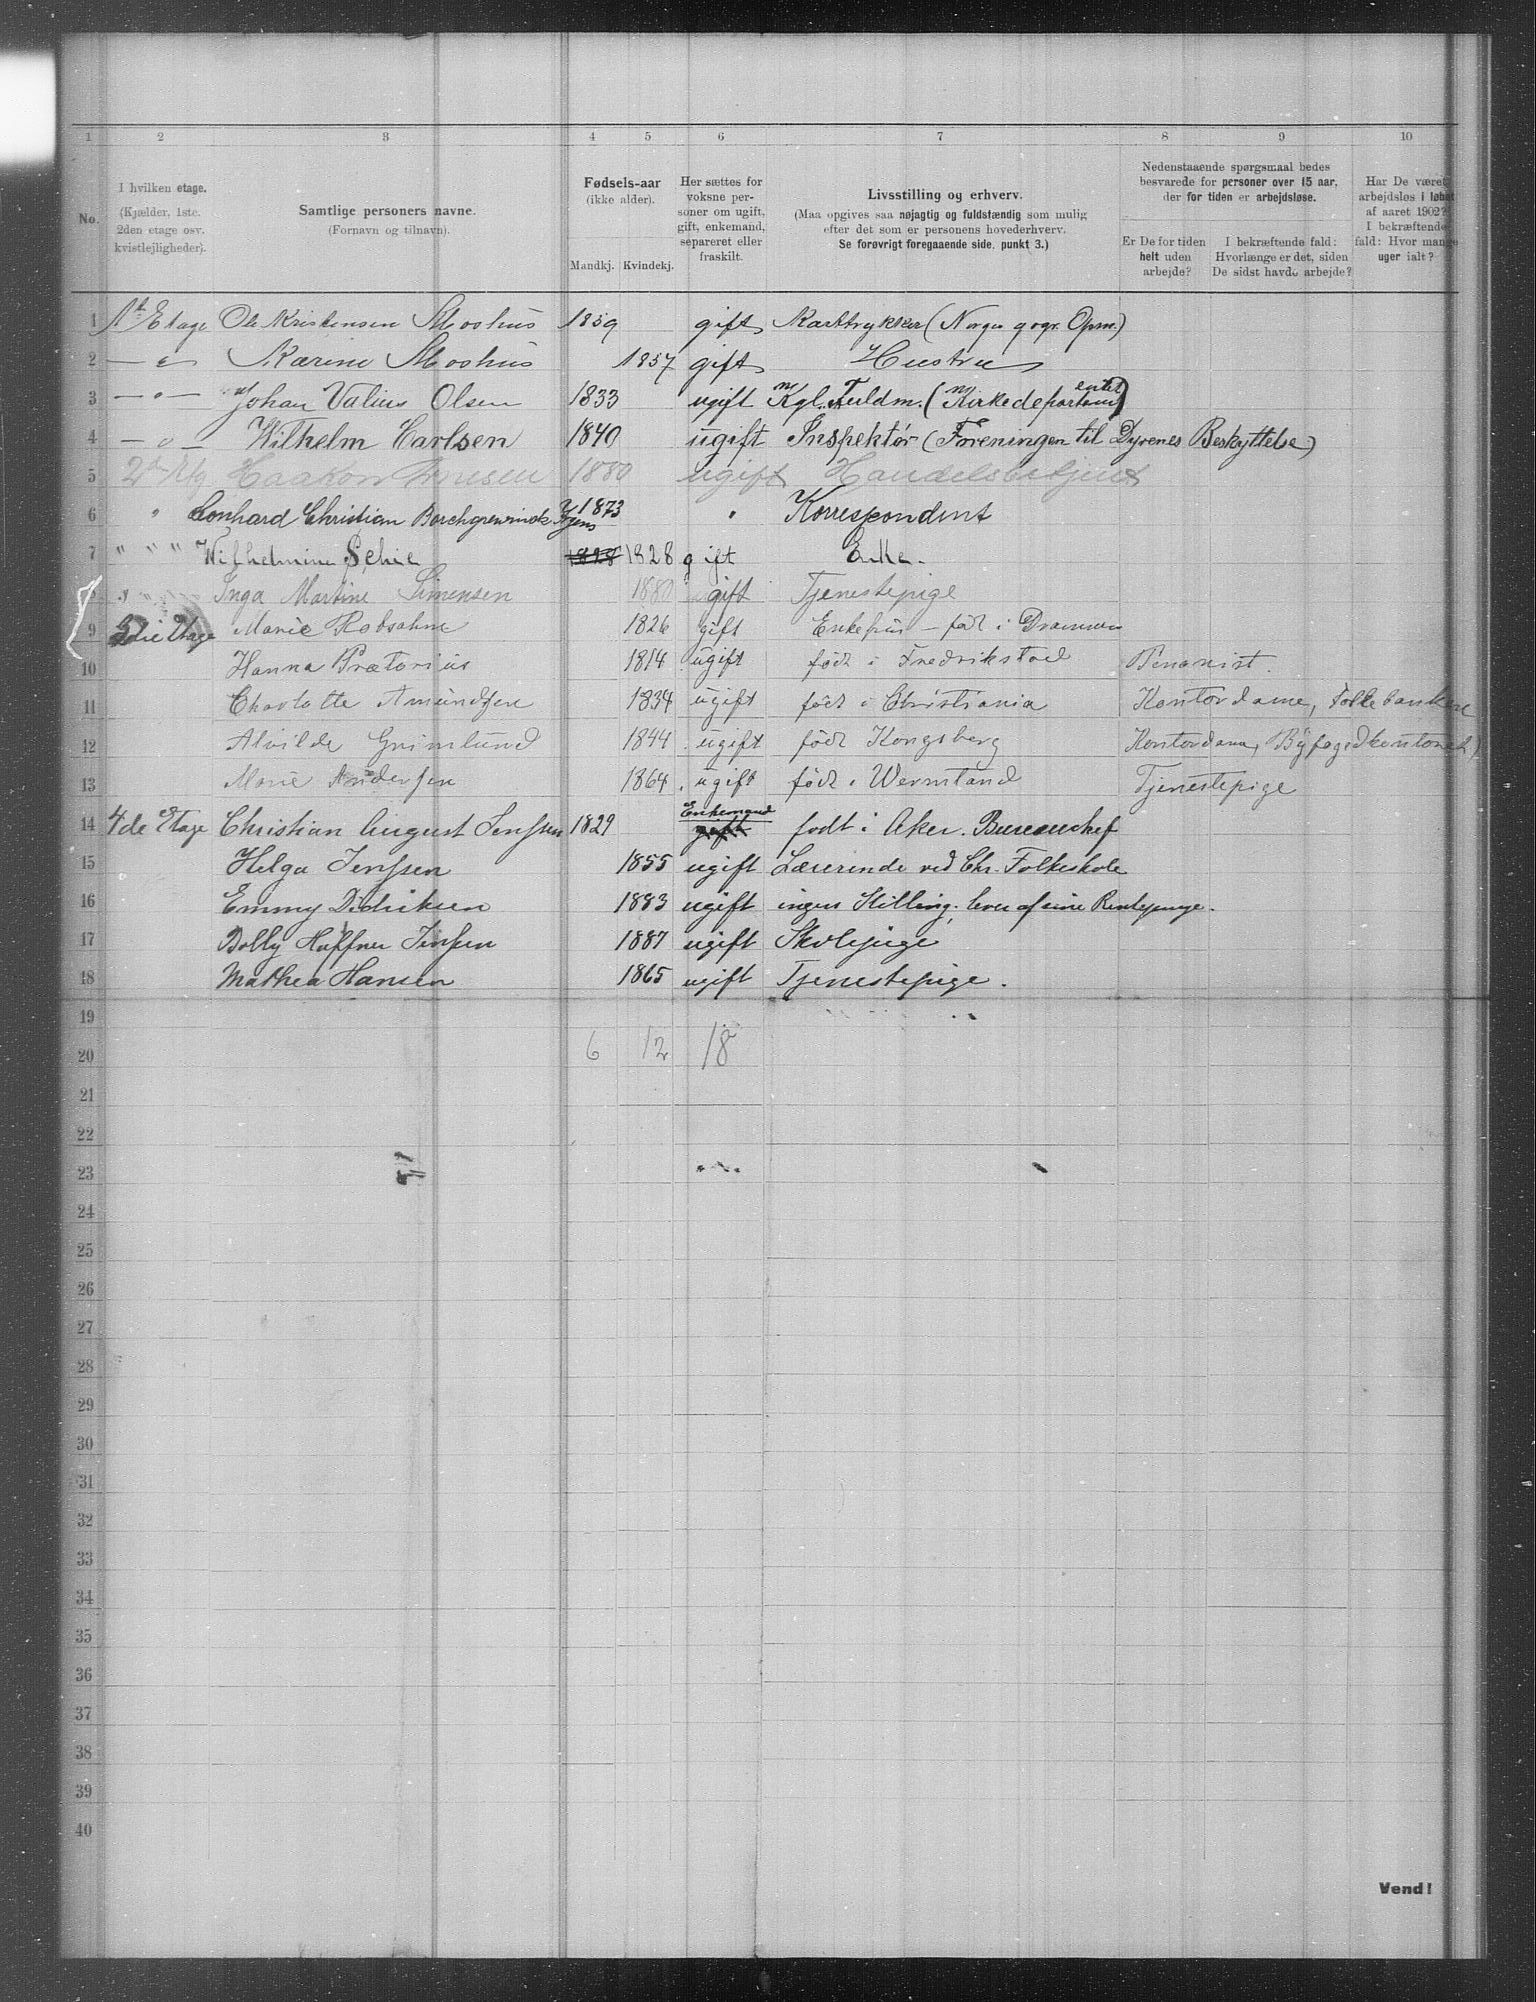 1 2 3 4 5 6 7 8 9 10
No.
I hvilken etage.
(Kjælder, 1ste.
2den etage osv.
kvistlejligheder).
Samtlige personers navne.
(Fornavn og tilnavn).
Fødsels-aar
(ikke alder).
Mandkj. Kvindekj.
Her sættes for
voksne per-
soner om ugift,
gift, enkemand,
separeret eller
fraskilt.
Livsstilling og erhverv.
(Maa opgives saa nøjagtig og fuldstændig som mulig
efter det som er personens hovederhverv.
Se forøvrigt foregaaende side, punkt 3.)
Nedenstaaende spørgsmaal bedes
besvarede for personer over 15 aar,
der for tiden er arbejdsløse.
Er De for tiden
helt uden
arbejde?
I bekræftende fald:
Hvorlænge er det, siden
De sidst havde arbejde?
Har De været
arbejdsløs i løbet
af aaret 1902?
I bekræftende
fald: Hvor mange
uger ialt?
1 1st Etage Ole Kristensen Moshus 1859 gift Karttrykker (Norges geogr. Opm.)
2 — " — Karine Moshus 1857 gift Hustru
3 — " — Johan Valius Olsen 1833 ugift Kgl. Fuldm. (Kirkedepartementet)
4 — " — Wilhelm Carlsen 1840 ugift Inspektør (Foreningen til Dyrenes Beskyttelse)
5 2den Etg Haakon Jensen 1880 ugift Handelsbetjent
6 " Leonhard Christian Borchgrewinck 1873 " Korrespondent
7 " " " Wilhelmine Schie 1828 1828 gift Enke.
8 " " " Inga Martine Simensen 1880 ugift Tjenestepige
9 3die Etage Marie Robsahm 1826 gift Enkefru – født i Drammen
10 Hanna Prætorius 1814 ugift født i Fredrikstad Penonist.
11 Charlotte Amundsen 1834 ugift født i Christiania Kontordame, Folkebanken
12 Alvilde Grimlund 1844 ugift født Kongsberg Kontordame, Byfogedkontoret)
13 Marie Andersen 1864 ugift født i Wermland Tjenestepige
14 4de Etage Christian August Jenssen 1829 Enkemand gift født i Aker. Bureauchef
15 Helga Jenssen 1855 ugift Lærerinde ved Chr. Folkeskole
16 Emmy Didriksen 1883 ugift ingen Stilling, lever af sine Rentepenge.
17 Dolly Haffner Jenssen 1887 ugift Skolepige
18 Mathea Hansen 1865 ugift Tjenestepige.
19
20 6 12 18
21
22
23
24
25
26
27
28
29
30
31
32
33
34
35
36
37
38
39
40
Vend!